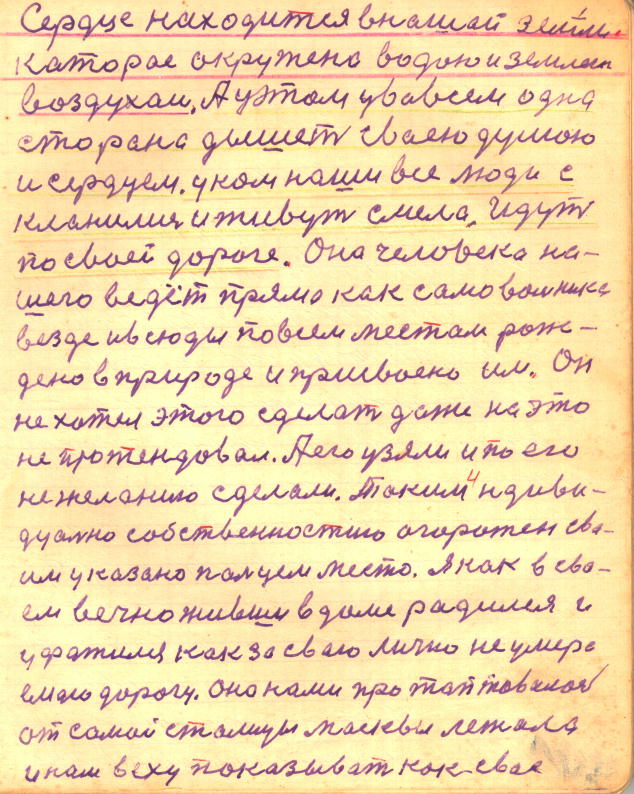 Сердце находится в нашей земли.
каторае окружено водою и землею
воздухам, А уэтом увовсем одна
сторана дышет сваею душою
и сердцем. у ком наши все люди с
кланилися и живут смела, Идут
по своей дороге. Она человека на-
шего ведёт прямо как самовольника
везде и всюды по всем местам рож-
дено в природе и присвоено им. Он
не хотел этого сделат даже на это
не протендовал. А его узяли и по его
нежеланию сделали. Таким индиви-
дуално собственностию огорожен сва-
им указано палцем место. Я как в сво-
ем вечно живши в доме радился и
ухватился как за сваю лично не умера
емаю дорогу. Она нами протоптованой
от самой столицы масквы лежала
и нам веху показыват как свае